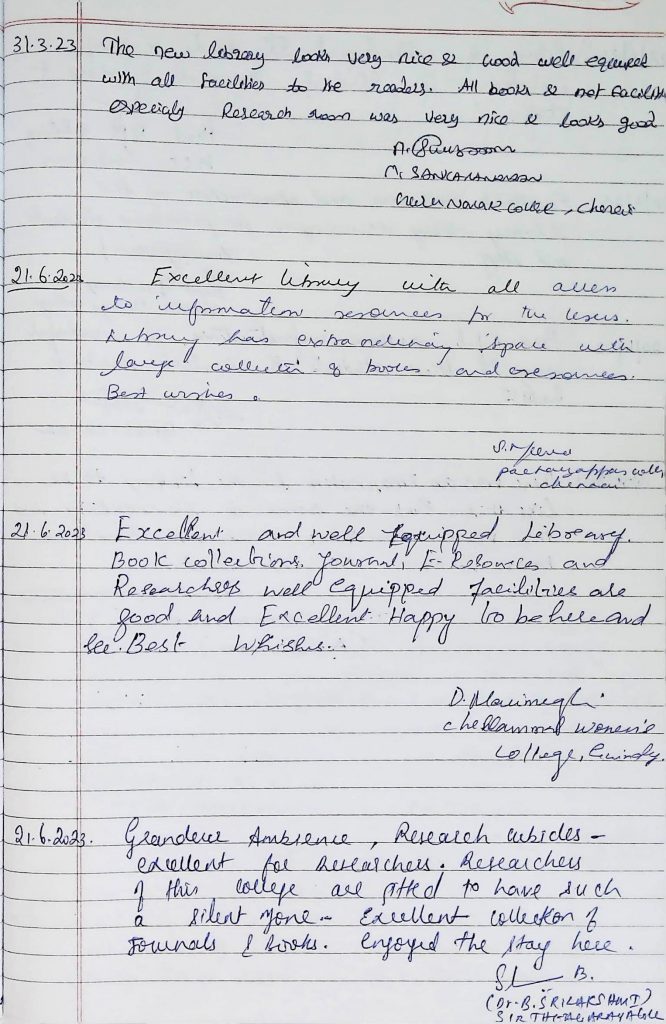 31.3.23 The new library looks very nice & good well equiped
with all facilities to the readers. All books & net facilit
especialy Research room was very nice & looks good
M. SANKARANARAYANAN
Guru Nanak College, Chennai
21.6.2023 Excellent library with all access
to information resources for the users.
Library has extraordinary space with
large collectin of books and resources.
Best wishes.
S. Meena
pachaiyappas college
chennai
21.6.2023 Excellent and well Equipped Library.
Book collections, Journal, E-Resources and
Researchers well equipped facilities are
good and Excellent Happy to be here and
see. Best Whishes..
chellammal women's
College, Guindy.
21.6.2023. Grandeur Ambience, Research cubicles -
excellent for researchers. Researchers
of this college are gifted to have such
a silent zone - Excellent collection of
Journals & books. Enjoyed the stay here.
B.
(Dr. B. SRILAKSHMI)
SIR THEAGARAYA COLL